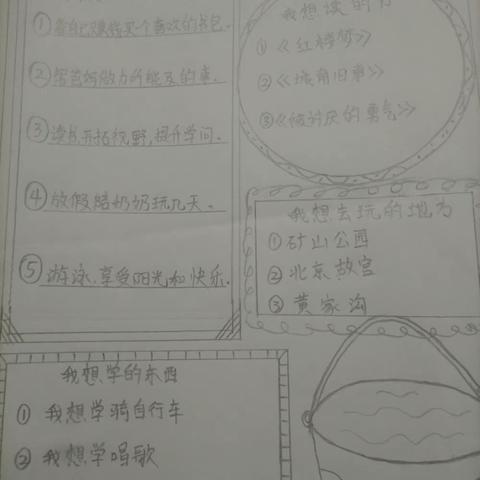 ①靠自己赚钱买一个喜欢的书包。
②帮爸妈做力所能及的事。
③读书开拓视野,提升学问。
④放假陪奶奶玩几天。
⑤游泳,享受阳光和快乐。
我想读的
①《红楼梦》
②《城南旧事》
③《被讨厌的勇气》
我想去玩的地方
①矿山公园
②北京故宫
③黄家沟
我想学的东西
①我想学骑自行车
②我想学唱歌